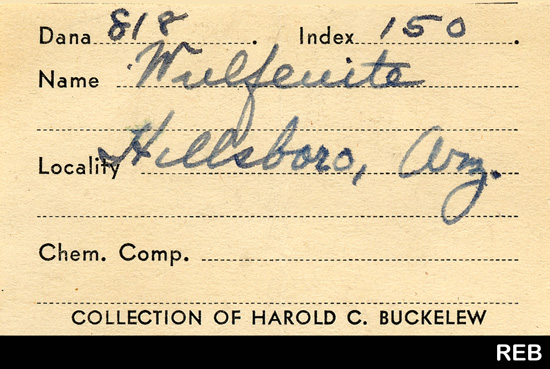 Dana 818. Index 150.
Name Wulfenite
Locality Hillsboro, Arz.
Chem. Comp.
COLLECTION OF HAROLD C. BUCKELEW
REB